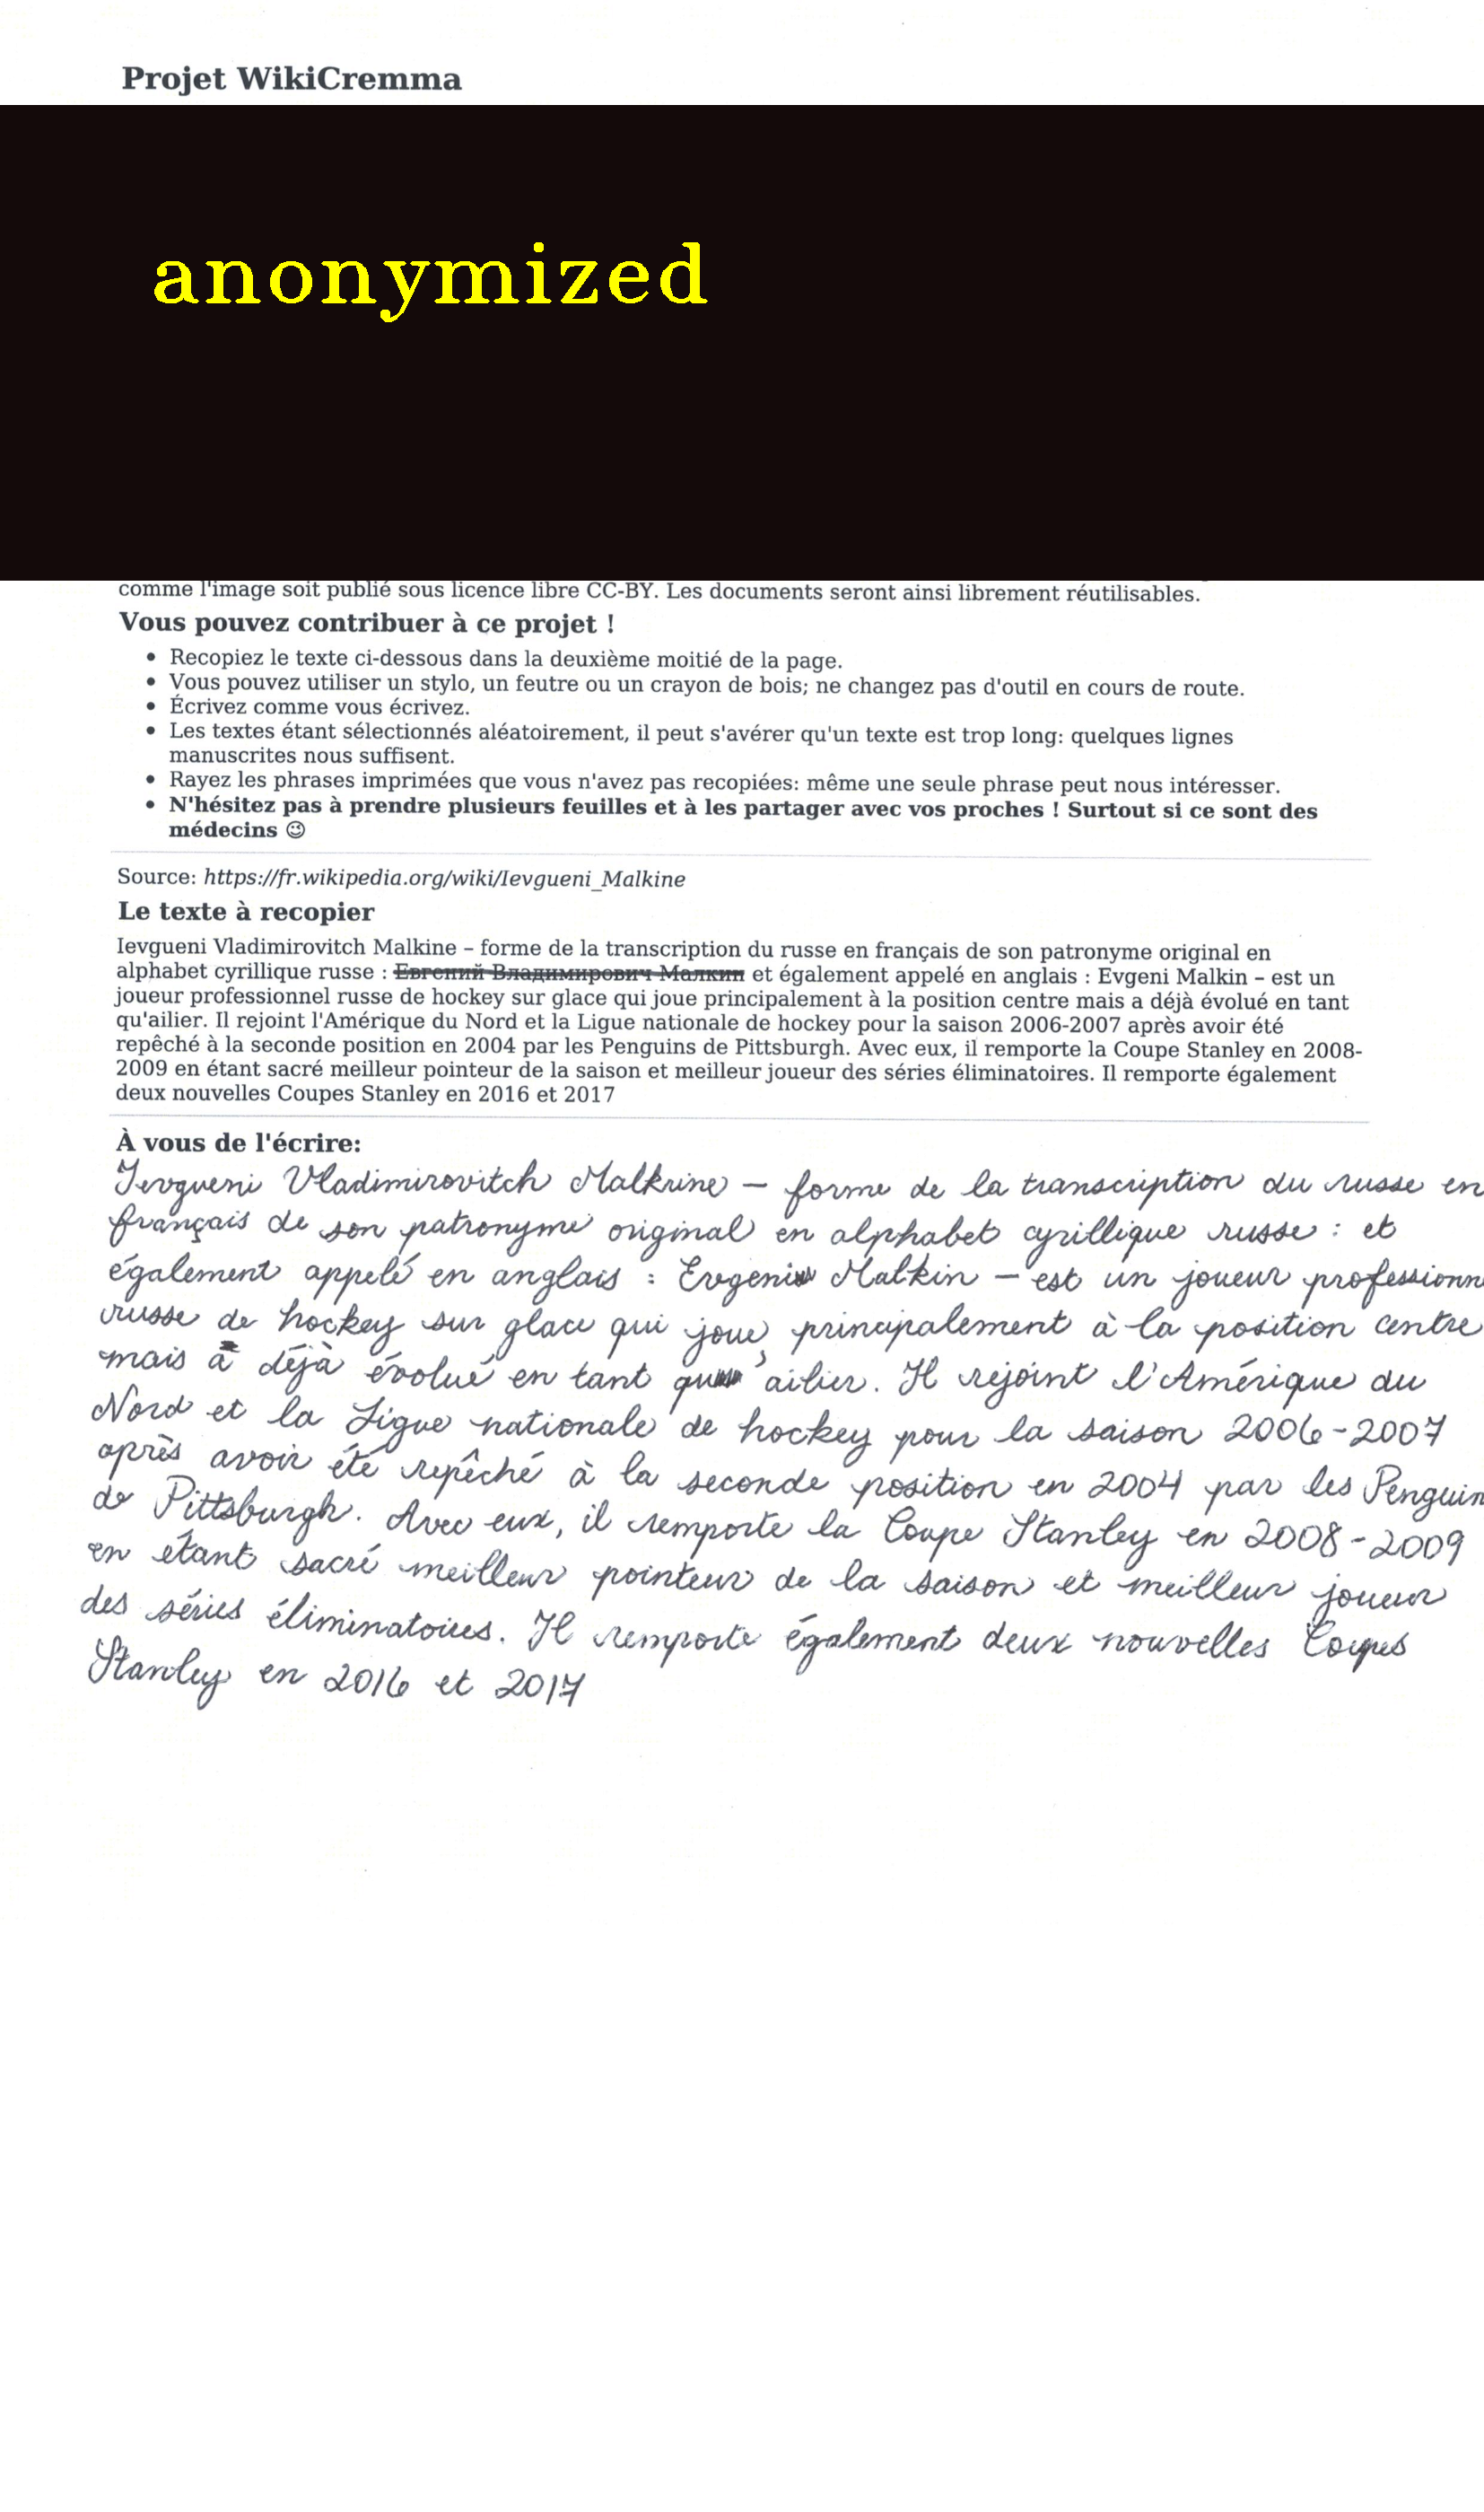 Projet WikiCremma
anonymized
comme l'image soit publié sous licence libre CC-BY. Les documents seront ainsi librement réutilisables.
Vous pouvez contribuer à ce projet !
• Recopiez le texte ci-dessous dans la deuxième moitié de la page.
• Vous pouvez utiliser un stylo, un feutre ou un crayon de bois; ne changez pas d'outil en cours de route.
• Écrivez comme vous écrivez.
• Les textes étant sélectionnés aléatoirement, il peut s'avérer qu'un texte est trop long: quelques lignes
manuscrites nous suffisent.
• Rayez les phrases imprimées que vous n'avez pas recopiées: même une seule phrase peut nous intéresser.
• N'hésitez pas à prendre plusieurs feuilles et à les partager avec vos proches ! Surtout si ce sont des
médecins 😉
Source: https://fr.wikipedia.org/wiki/Ievgueni_Malkine
Le texte à recopier
Ievgueni Vladimirovitch Malkine – forme de la transcription du russe en français de son patronyme original en
alphabet cyrillique russe : Евгений Владимирович Малкин et également appelé en anglais : Evgeni Malkin – est un
joueur professionnel russe de hockey sur glace qui joue principalement à la position centre mais a déjà évolué en tant
qu'ailier. Il rejoint l'Amérique du Nord et la Ligue nationale de hockey pour la saison 2006-2007 après avoir été
repêché à la seconde position en 2004 par les Penguins de Pittsburgh. Avec eux, il remporte la Coupe Stanley en 2008-
2009 en étant sacré meilleur pointeur de la saison et meilleur joueur des séries éliminatoires. Il remporte également
deux nouvelles Coupes Stanley en 2016 et 2017
À vous de l'écrire:
Ievgueni Vladimirovitch Malkine – forme de la transcription du russe en
français de son patronyme original en alphabet cyrillique russe : et
également appelé en anglais : Evgeni Malkin – est un joueur professionn
russe de hockey sur glace qui joue principalement à la position centre
mais a déjà évolué en tant qu'ailier. Il rejoint l'Amérique du
Nord et la Ligue nationale de hockey pour la saison 2006-2007
après avoir été repêché à la seconde position en 2004 par les Penguin
de Pittsburgh. Avec eux, il remporte la Coupe Stanley en 2008-2009
en étant sacré meilleur pointeur de la saison et meilleur joueur
des séries éliminatoires. Il remporte également deux nouvelles Coupes
Stanley en 2016 et 2017